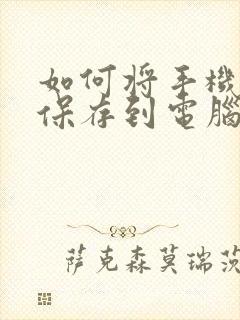 如何将手機
保存到電腦
萨克森莫瑞茨